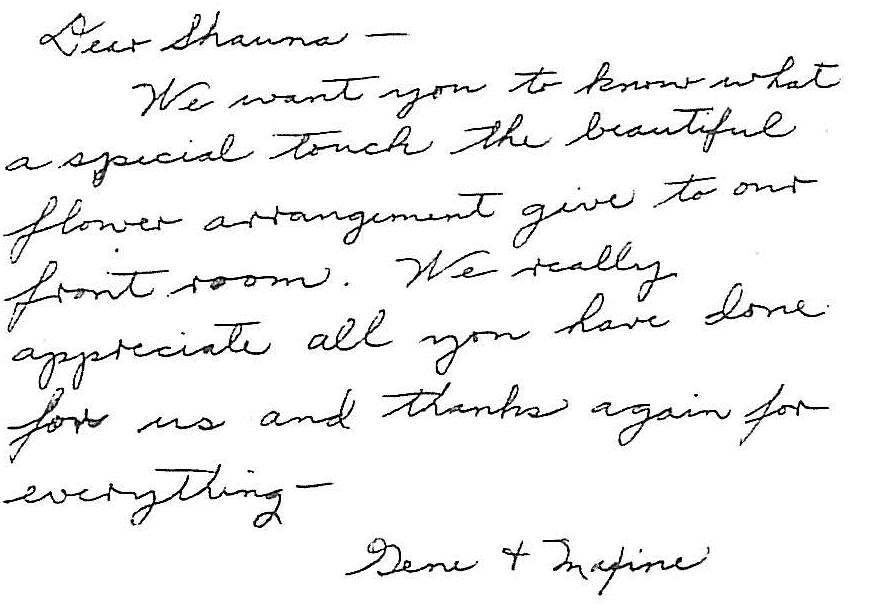 Dear Shauna —
We want you to know what
a special touch the beautiful
flower arrangement give to our
front room. We really
appreciate all you have done
for us and thanks again for
everything —
Gene + Maxine